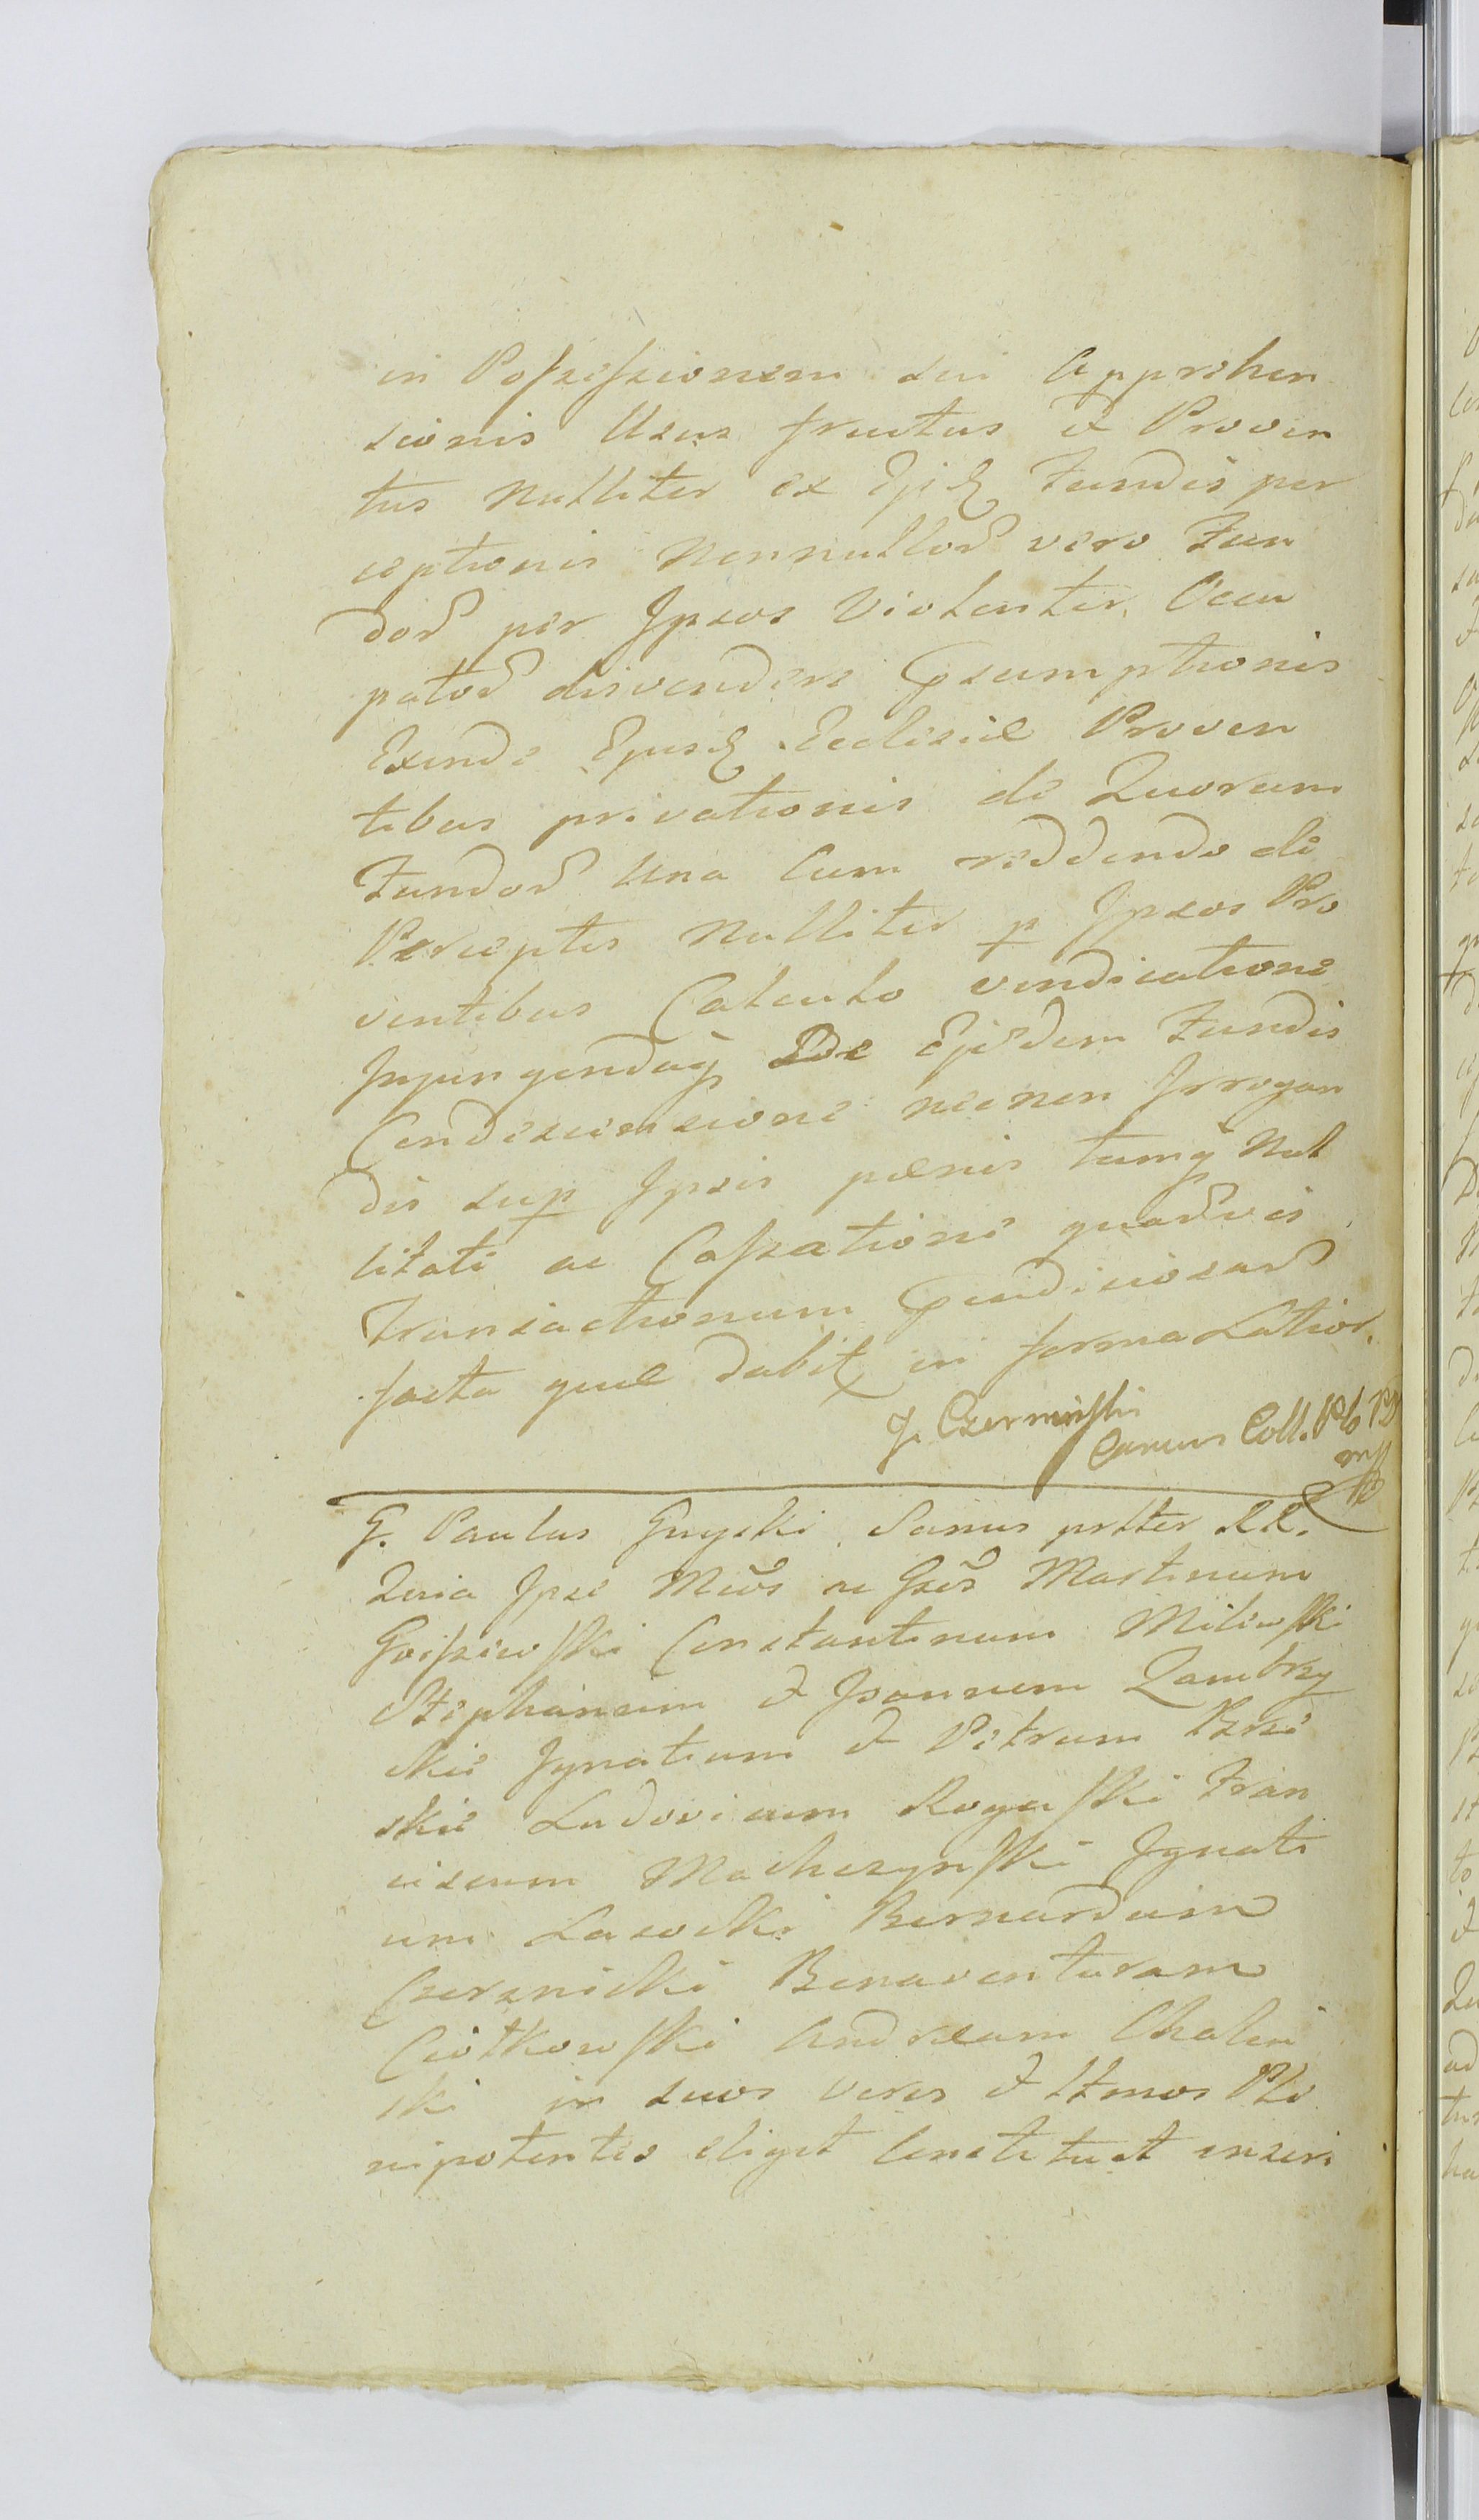 in Possessionem sui Apprehen
sionis Usus fructus et Proven
tus nulliter ex Ejsd Fundis per
ceptionis Nonnullor vero Fun
dor per Ipsos Violenter Occu
pator disvendere Consumptionis
Exinde Ejusd Ecclesiæ Proven
tibus privationis de Quorum
Fundor Una Cum reddendo de
Perceptis Nulliter p Ipsos Pro
ventibus Calculo vendicatione
Injungendaq Ejsdem Fundis
Condescensione necnon Irrogan
dis sup Ipsis pœnis tumq Nul
litati ac Cassatione quarvis
Transactionum
facta quæ dabit in forma Latior.
J. Czerminski
Canus Coll.
G. Paulus Gnyski Sanus prtter RR.
Quia Ipse Mcos ac Gsos Martinum
Goissiewski Constantinum Milewski
Stephanum et Joannem Zambrzy
ckie Ignatium et Petrum
skie Ludovicum Rogalski Fran
ciscum Machczynski Ignati
um Lasocki Bernardum
Czerznicki Bonaventuram
Ciotkowski Andream Chalin
ski in suos veros et ltmos Ple
nipotentes eligit Constituit inscri